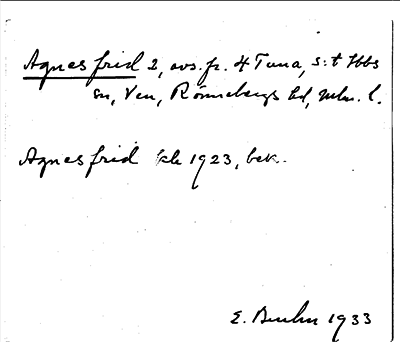 Agnesfrid 2, avs. fr. 4 Tuna, S:t Ibbs
sn, Ven, Rönnebergs hd, Mlm. l.
Agnesfrid kk 1923, bek.
E. Bruhn 1933